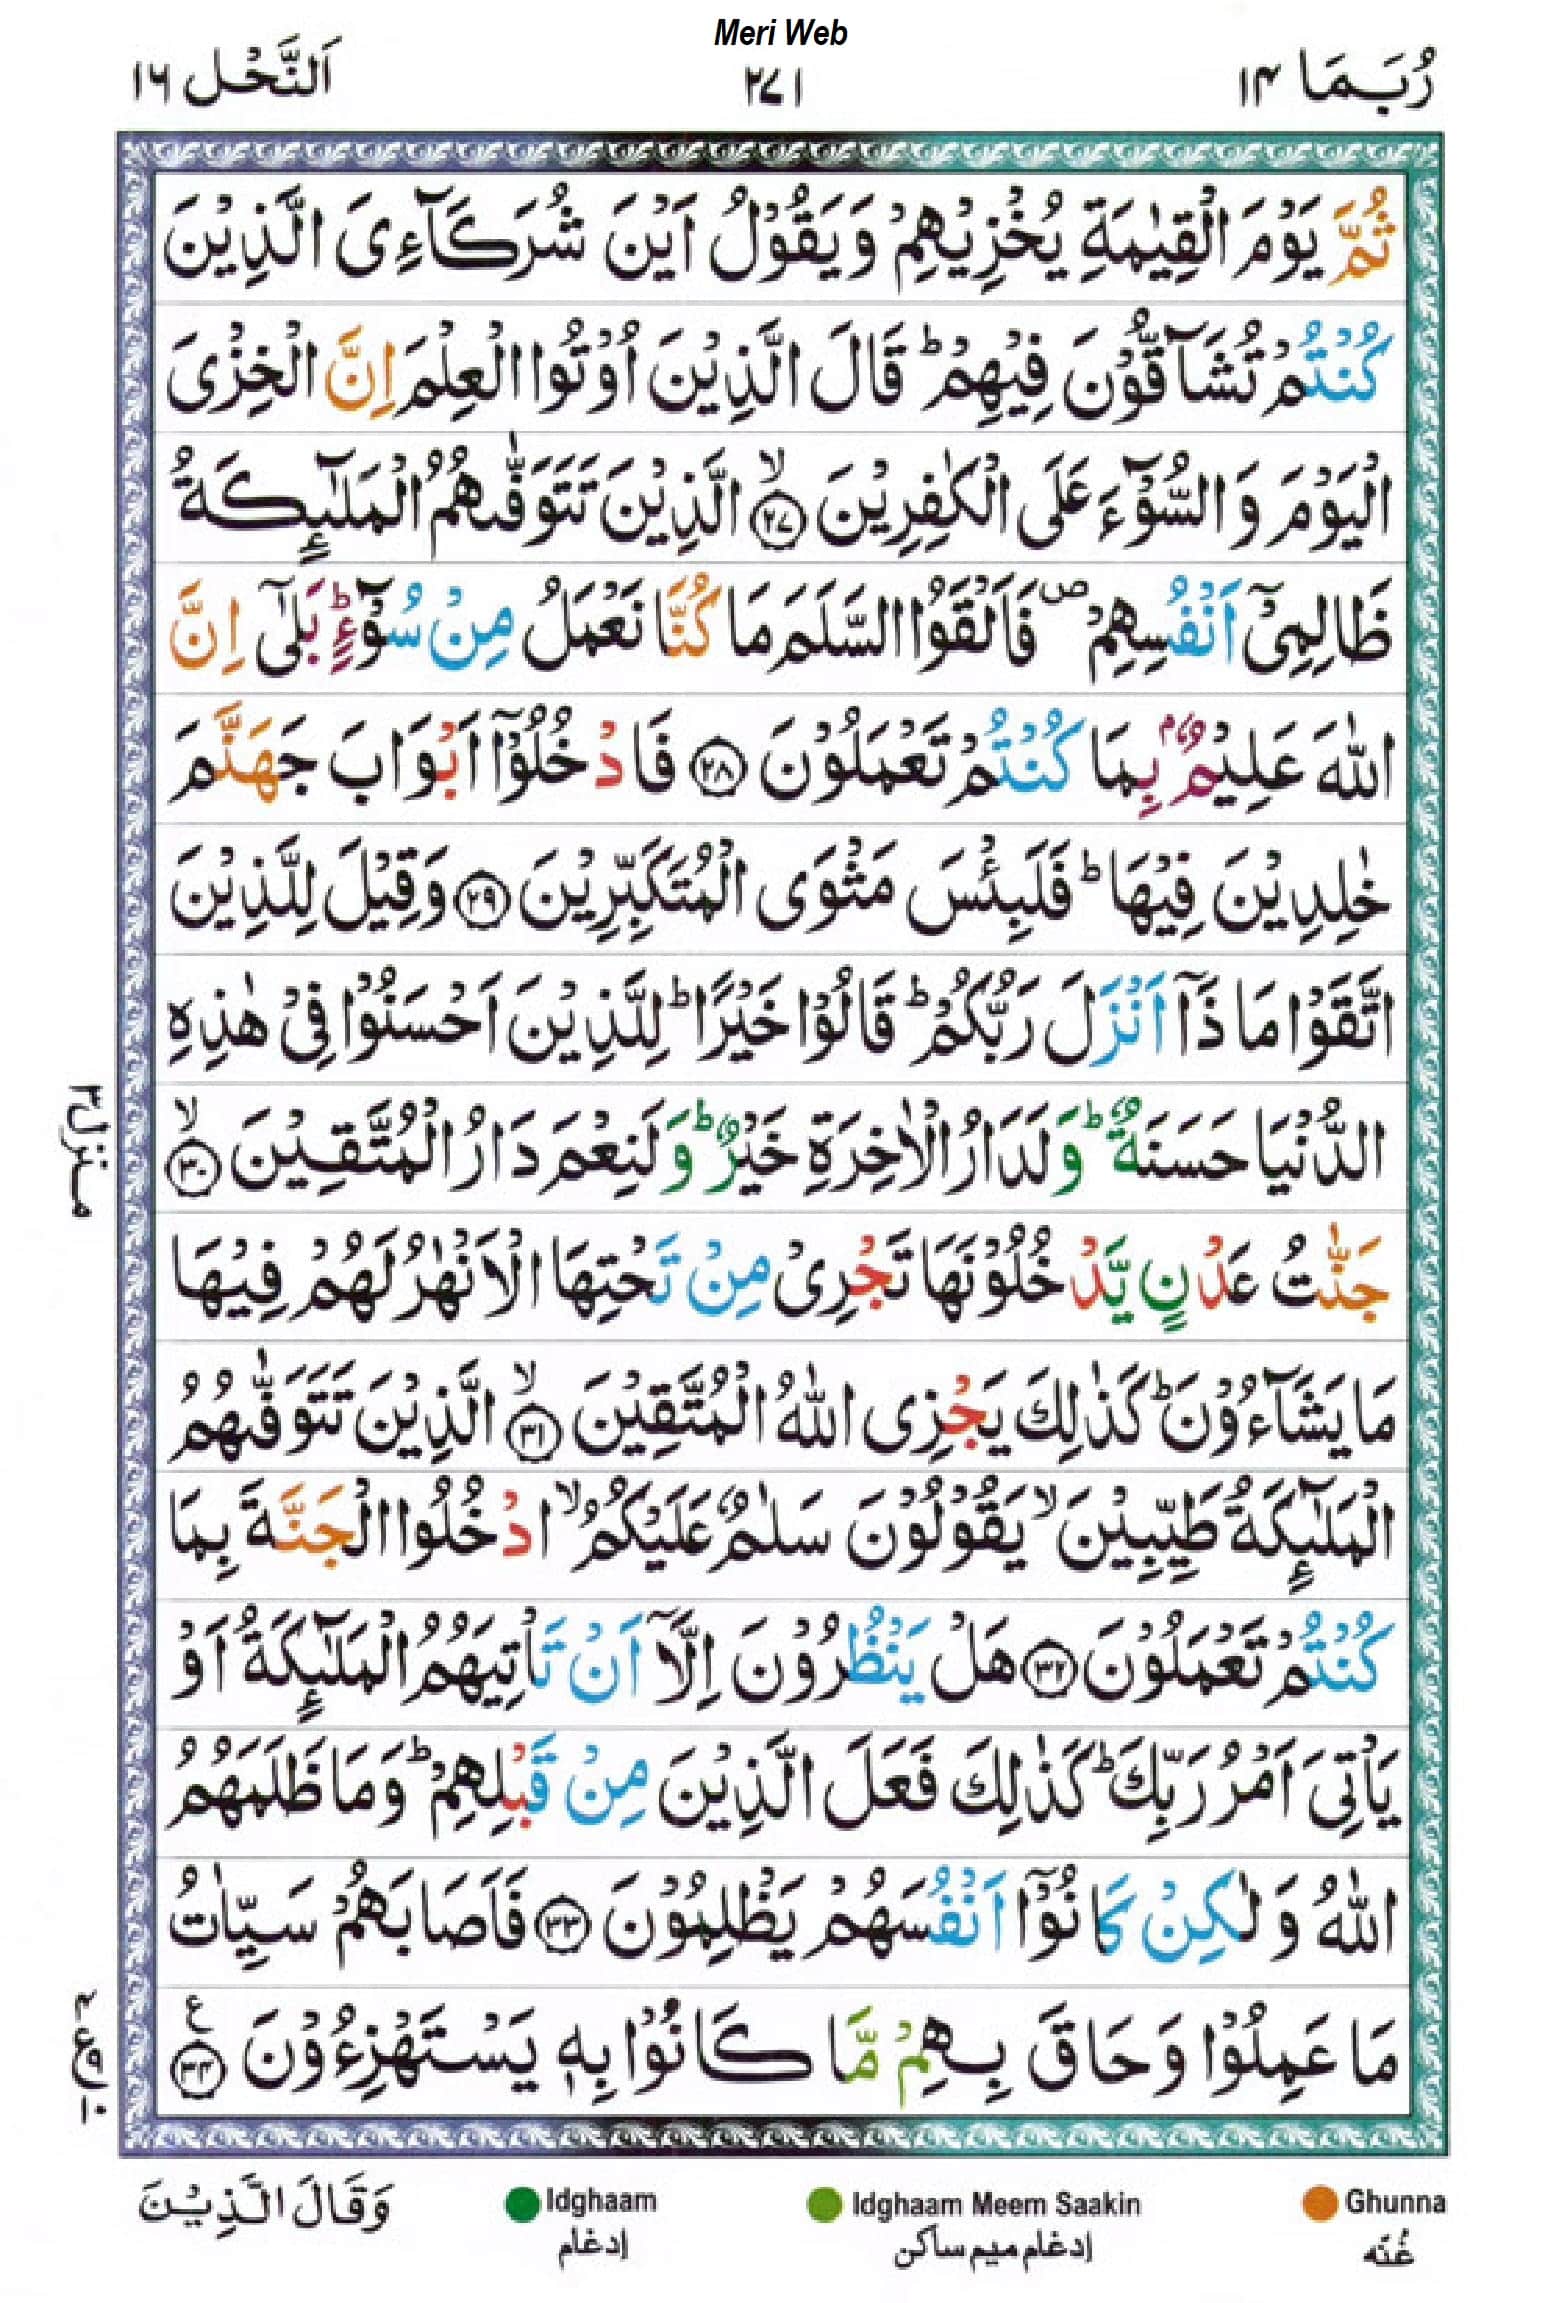 Meri Web
رُبَمَا ۱۴
۲۷۱
اَلنَّحْل ۱۶
ثُمَّ يَوْمَ الْقِيٰمَةِ يُخْزِيْهِمْ وَيَقُوْلُ اَيْنَ شُرَكَآءِیَ الَّذِيْنَ
كُنْتُمْ تُشَآقُّوْنَ فِيْهِمْ ؕ قَالَ الَّذِيْنَ اُوْتُوا الْعِلْمَ اِنَّ الْخِزْیَ
الْيَوْمَ وَالسُّوْٓءَ عَلَی الْكٰفِرِيْنَ ۙ‏﴿۲۷﴾ الَّذِيْنَ تَتَوَفّٰىهُمُ الْمَلٰٓٮِٕكَةُ
ظَالِمِیْٓ اَنْفُسِهِمْ ۪ فَاَلْقَوُا السَّلَمَ مَا كُنَّا نَعْمَلُ مِنْ سُوْٓءٍ ؕ بَلٰٓی اِنَّ
اللّٰهَ عَلِيْمٌۢ بِمَا كُنْتُمْ تَعْمَلُوْنَ ﴿۲۸﴾ فَادْخُلُوْٓا اَبْوَابَ جَهَنَّمَ
خٰلِدِيْنَ فِيْهَا ؕ فَلَبِئْسَ مَثْوَی الْمُتَكَبِّرِيْنَ ﴿۲۹﴾ وَقِيْلَ لِلَّذِيْنَ
اتَّقَوْا مَاذَآ اَنْزَلَ رَبُّكُمْ ؕ قَالُوْا خَيْرًا ؕ لِلَّذِيْنَ اَحْسَنُوْا فِیْ هٰذِهِ
الدُّنْيَا حَسَنَةٌ ؕ وَلَدَارُ الْاٰخِرَةِ خَيْرٌ ؕ وَلَنِعْمَ دَارُ الْمُتَّقِيْنَ ۙ﴿۳۰﴾
جَنّٰتُ عَدْنٍ يَّدْخُلُوْنَهَا تَجْرِیْ مِنْ تَحْتِهَا الْاَنْهٰرُ لَهُمْ فِيْهَا
مَا يَشَآءُوْنَ ؕ كَذٰلِكَ يَجْزِی اللّٰهُ الْمُتَّقِيْنَ ۙ﴿۳۱﴾ الَّذِيْنَ تَتَوَفّٰىهُمُ
الْمَلٰٓٮِٕكَةُ طَيِّبِيْنَ ۙ يَقُوْلُوْنَ سَلٰمٌ عَلَيْكُمُ ۙ ادْخُلُوا الْجَنَّةَ بِمَا
كُنْتُمْ تَعْمَلُوْنَ ﴿۳۲﴾ هَلْ يَنْظُرُوْنَ اِلَّآ اَنْ تَاْتِيَهُمُ الْمَلٰٓٮِٕكَةُ اَوْ
يَاْتِیَ اَمْرُ رَبِّكَ ؕ كَذٰلِكَ فَعَلَ الَّذِيْنَ مِنْ قَبْلِهِمْ ؕ وَمَا ظَلَمَهُمُ
اللّٰهُ وَلٰكِنْ كَانُوْٓا اَنْفُسَهُمْ يَظْلِمُوْنَ ﴿۳۳﴾ فَاَصَابَهُمْ سَيِّاٰتُ
مَا عَمِلُوْا وَحَاقَ بِهِمْ مَّا كَانُوْا بِهٖ يَسْتَهْزِءُوْنَ ﴿۳۴﴾ ع
منزل۳
وَقَالَ الَّذِيْنَ
Idghaam
ادغام
Idghaam Meem Saakin
ادغام میم ساکن
Ghunna
غُنّه